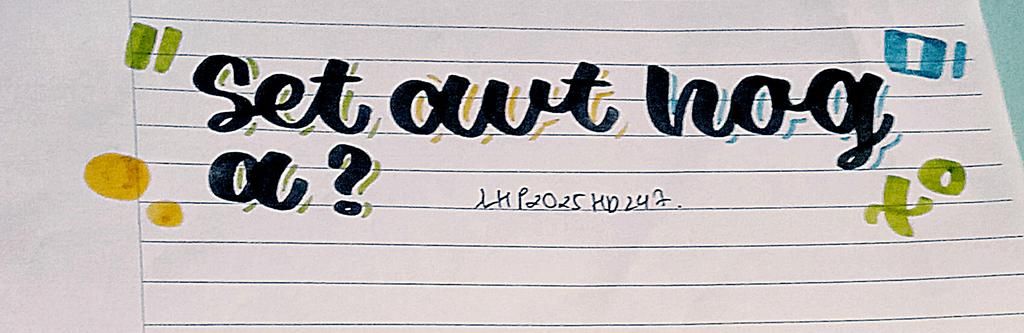 Set awt hog
a?
LHP2025HD247.